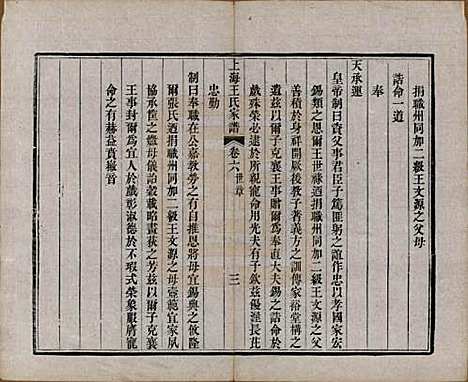 捐職州同加二級王文源之父母
誥命一道
奉
天承運
皇帝制曰資父事君臣子篤匪躬之誼作忠以孝國家宏
錫類之恩爾王世祿迺捐職州同加二級王文源之父
善積於身祥開厥後教子著義方之訓傳家裕堂構之
遺茲以爾子克襄王事贈爾爲奉直大夫錫之誥命於
戲殊榮必逮於所親寵命用光夫有子欽茲優渥長茲
忠勤
上海王氏家譜
卷六 世章
三
制曰奉職在公嘉教勞之有自推恩將母宜錫典之攸隆
爾張氏迺捐職州同加二級王文源之母壼範宜家夙
協承筐之媺母儀詒穀載昭畫荻之芳茲以爾子克襄
王事封爾爲宜人於戲彰淑德於不瑕式榮象服膺寵
命之有赫益賁徽音